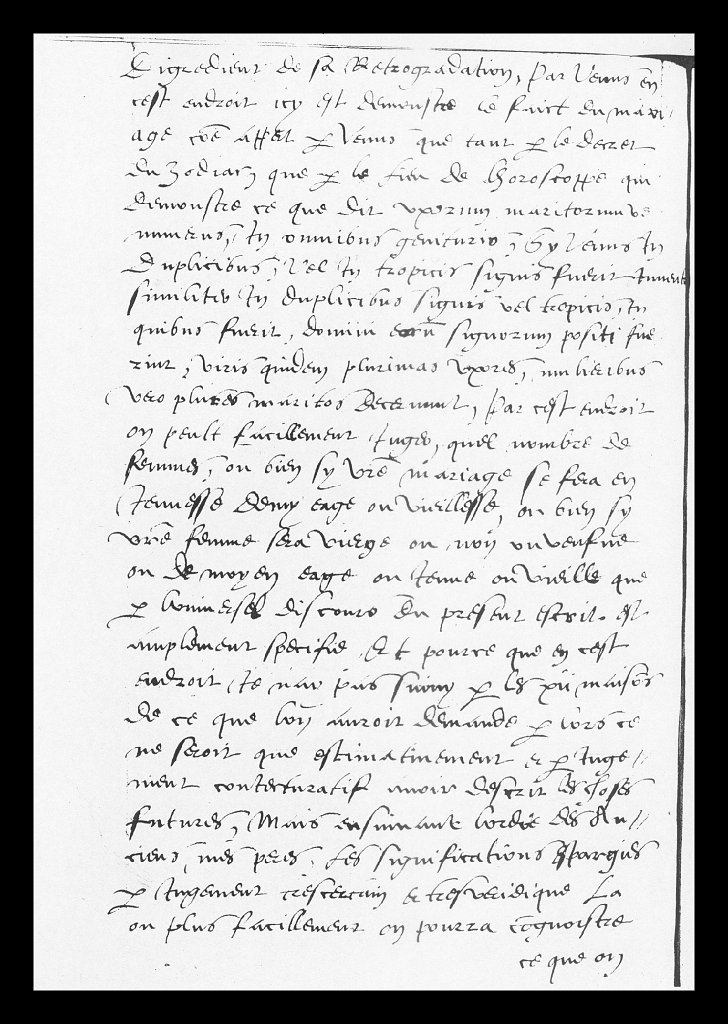 Digredient de sa Retrogradation, Par Venus en
cest endroit icy est demonstre le faict du mari-
age coe appert p Venus que tant p le decret
du Zodiac que p le lieu de lhoroscoppe qui
demonstre ce que dit uxorum maritorum ve
numerus, In omnibus genituris, Sy Venus In
Duplicibus, vel In tropicis signis fuerit Invent
similiter In duplicibus signis vel tropicis, In
quibus fuerit, domini eorū signorum positi fue
rint, viris quidem plurimas uxores, mulieribus
vero plures maritos decernunt, Par cest endroit
on peult facillement Juger, quel nombre de
femmes, ou bien sy vre mariage se fera en
Jeunesse demy eage ou vieillesse, ou bien sy
vre femme sera vierge ou non ou veufve
ou de moyen eage ou Jeune ou vieille que
p luniversel discours du present escrit est
amplement specifie. Et pource que en cest
endroit Je nay pas suivy p les xii maisons
de ce que lon auroit demande p lors ce
ne seroit que estimativement et p Juge-
ment coniecturatif avoir descrit les choses
futures, Mais ensuivant lordre des An-
ciens, mes peres. Les significations espargies
p Jugement trescertain et tresveridique La
ou plus facillement on pourra cognoistre
ce que on